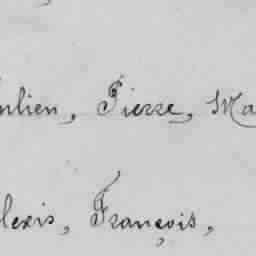 ulien, Pierre, Ma
lexis, François,